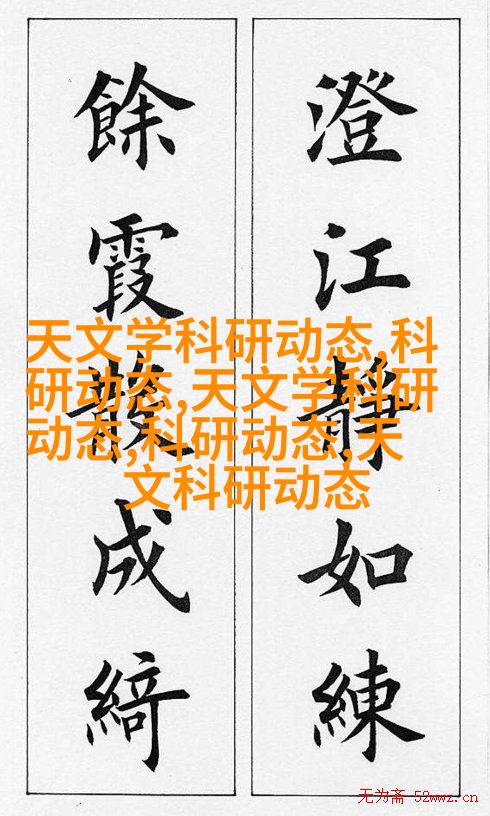 澄江靜如練
餘霞散成綺
天文学科研动态,科
研动态,天文学科研
动态,科研动态,天
文科研动态
无为斋 52wwz.cn